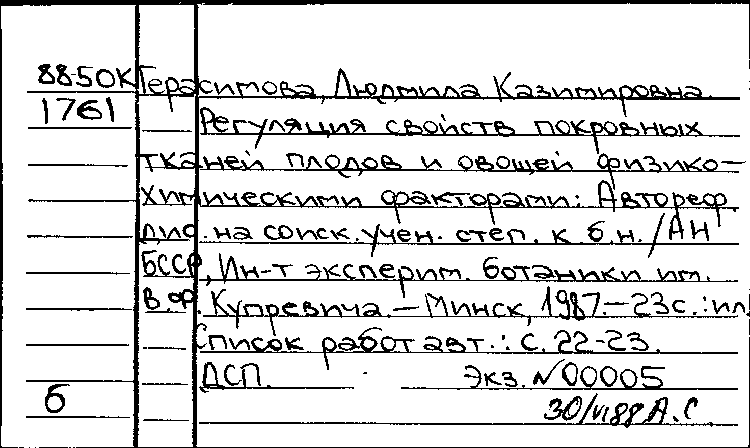 88-50К Герасимова, Людмила Казимировна.
1761 Регуляция свойств покровных
тканей плодов и овощей физико-
химическими факторами: Автореф.
дис. на соиск. учен. степ. к. б. н. / АН
БССР, Ин-т эксперим. ботаники им.
В. Ф. Купревича. — Минск, 1987. — 23 с.: ил.
Список работ авт.: с. 22-23.
ДСП. Экз. N 00005
б 30/VI 88 А. С.